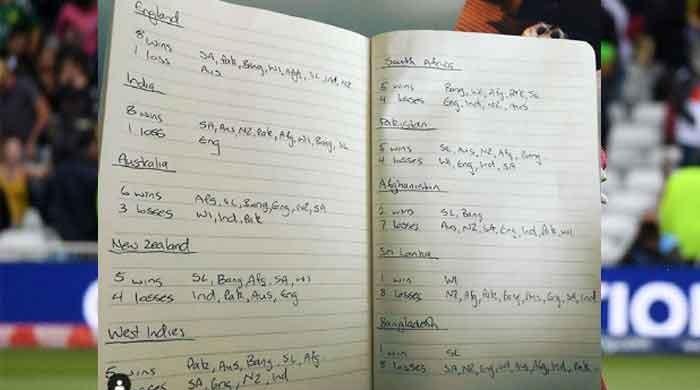 England
8 wins SA, Pak, Bang, WI, Afg, SL, Ind, NZ
1 loss Aus
India
8 wins SA, Aus, NZ, Pak, Afg, WI, Bang, SL
1 loss Eng
Australia
6 wins Afg, SL, Bang, Eng, NZ, SA
3 losses WI, Ind, Pak
New Zealand
5 wins SL, Bang, Afg, SA, WI
4 losses Ind, Pak, Aus, Eng
West Indies
5 wins Pak, Aus, Bang, SL, Afg
losses SA, Eng, NZ, Ind
South Africa
5 wins Bang, WI, Afg, Pak, SL
4 losses Eng, Ind, NZ, Aus
Pakistan
5 wins SL, Aus, NZ, Afg, Bang
4 losses WI, Eng, Ind, SA
Afghanistan
2 wins SL, Bang
7 losses Aus, NZ, SA, Eng, Ind, Pak, WI
Sri Lanka
1 win WI
8 losses NZ, Afg, Pak, Bang, Aus, Eng, SA, Ind
Bangladesh
1 win SL
8 losses SA, NZ, Eng, WI, Aus, Afg, Ind, Pak
ION